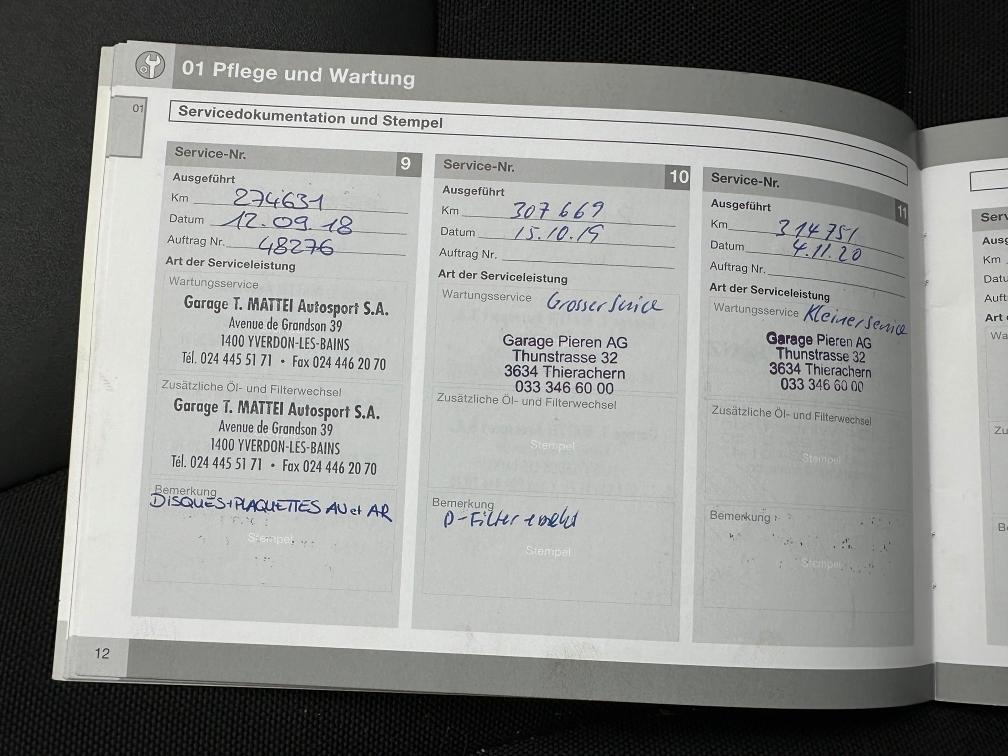 01 Pflege und Wartung
01
Servicedokumentation und Stempel
Service-Nr. 9
Ausgeführt
Km 274631
Datum 12.09.18
Auftrag Nr. 48276
Art der Serviceleistung
Wartungsservice
Garage T. MATTEI Autosport S.A.
Avenue de Grandson 39
1400 YVERDON-LES-BAINS
Tél. 024 445 51 71 • Fax 024 446 20 70
Zusätzliche Öl- und Filterwechsel
Garage T. MATTEI Autosport S.A.
Avenue de Grandson 39
1400 YVERDON-LES-BAINS
Tél. 024 445 51 71 • Fax 024 446 20 70
Bemerkung
DISQUES+PLAQUETTES AV et AR
Stempel
Service-Nr. 10
Ausgeführt
Km 307 669
Datum 15.10.19
Auftrag Nr.
Art der Serviceleistung
Wartungsservice Grosser Service
Garage Pieren AG
Thunstrasse 32
3634 Thierachern
033 346 60 00
Zusätzliche Öl- und Filterwechsel
Stempel
Bemerkung
D-Filter
Stempel
Service-Nr. 11
Ausgeführt
Km 314751
Datum 4.11.20
Auftrag Nr.
Art der Serviceleistung
Wartungsservice Kleiner Service
Garage Pieren AG
Thunstrasse 32
3634 Thierachern
033 346 60 00
Zusätzliche Öl- und Filterwechsel
Stempel
Bemerkung
Stempel
12
Km